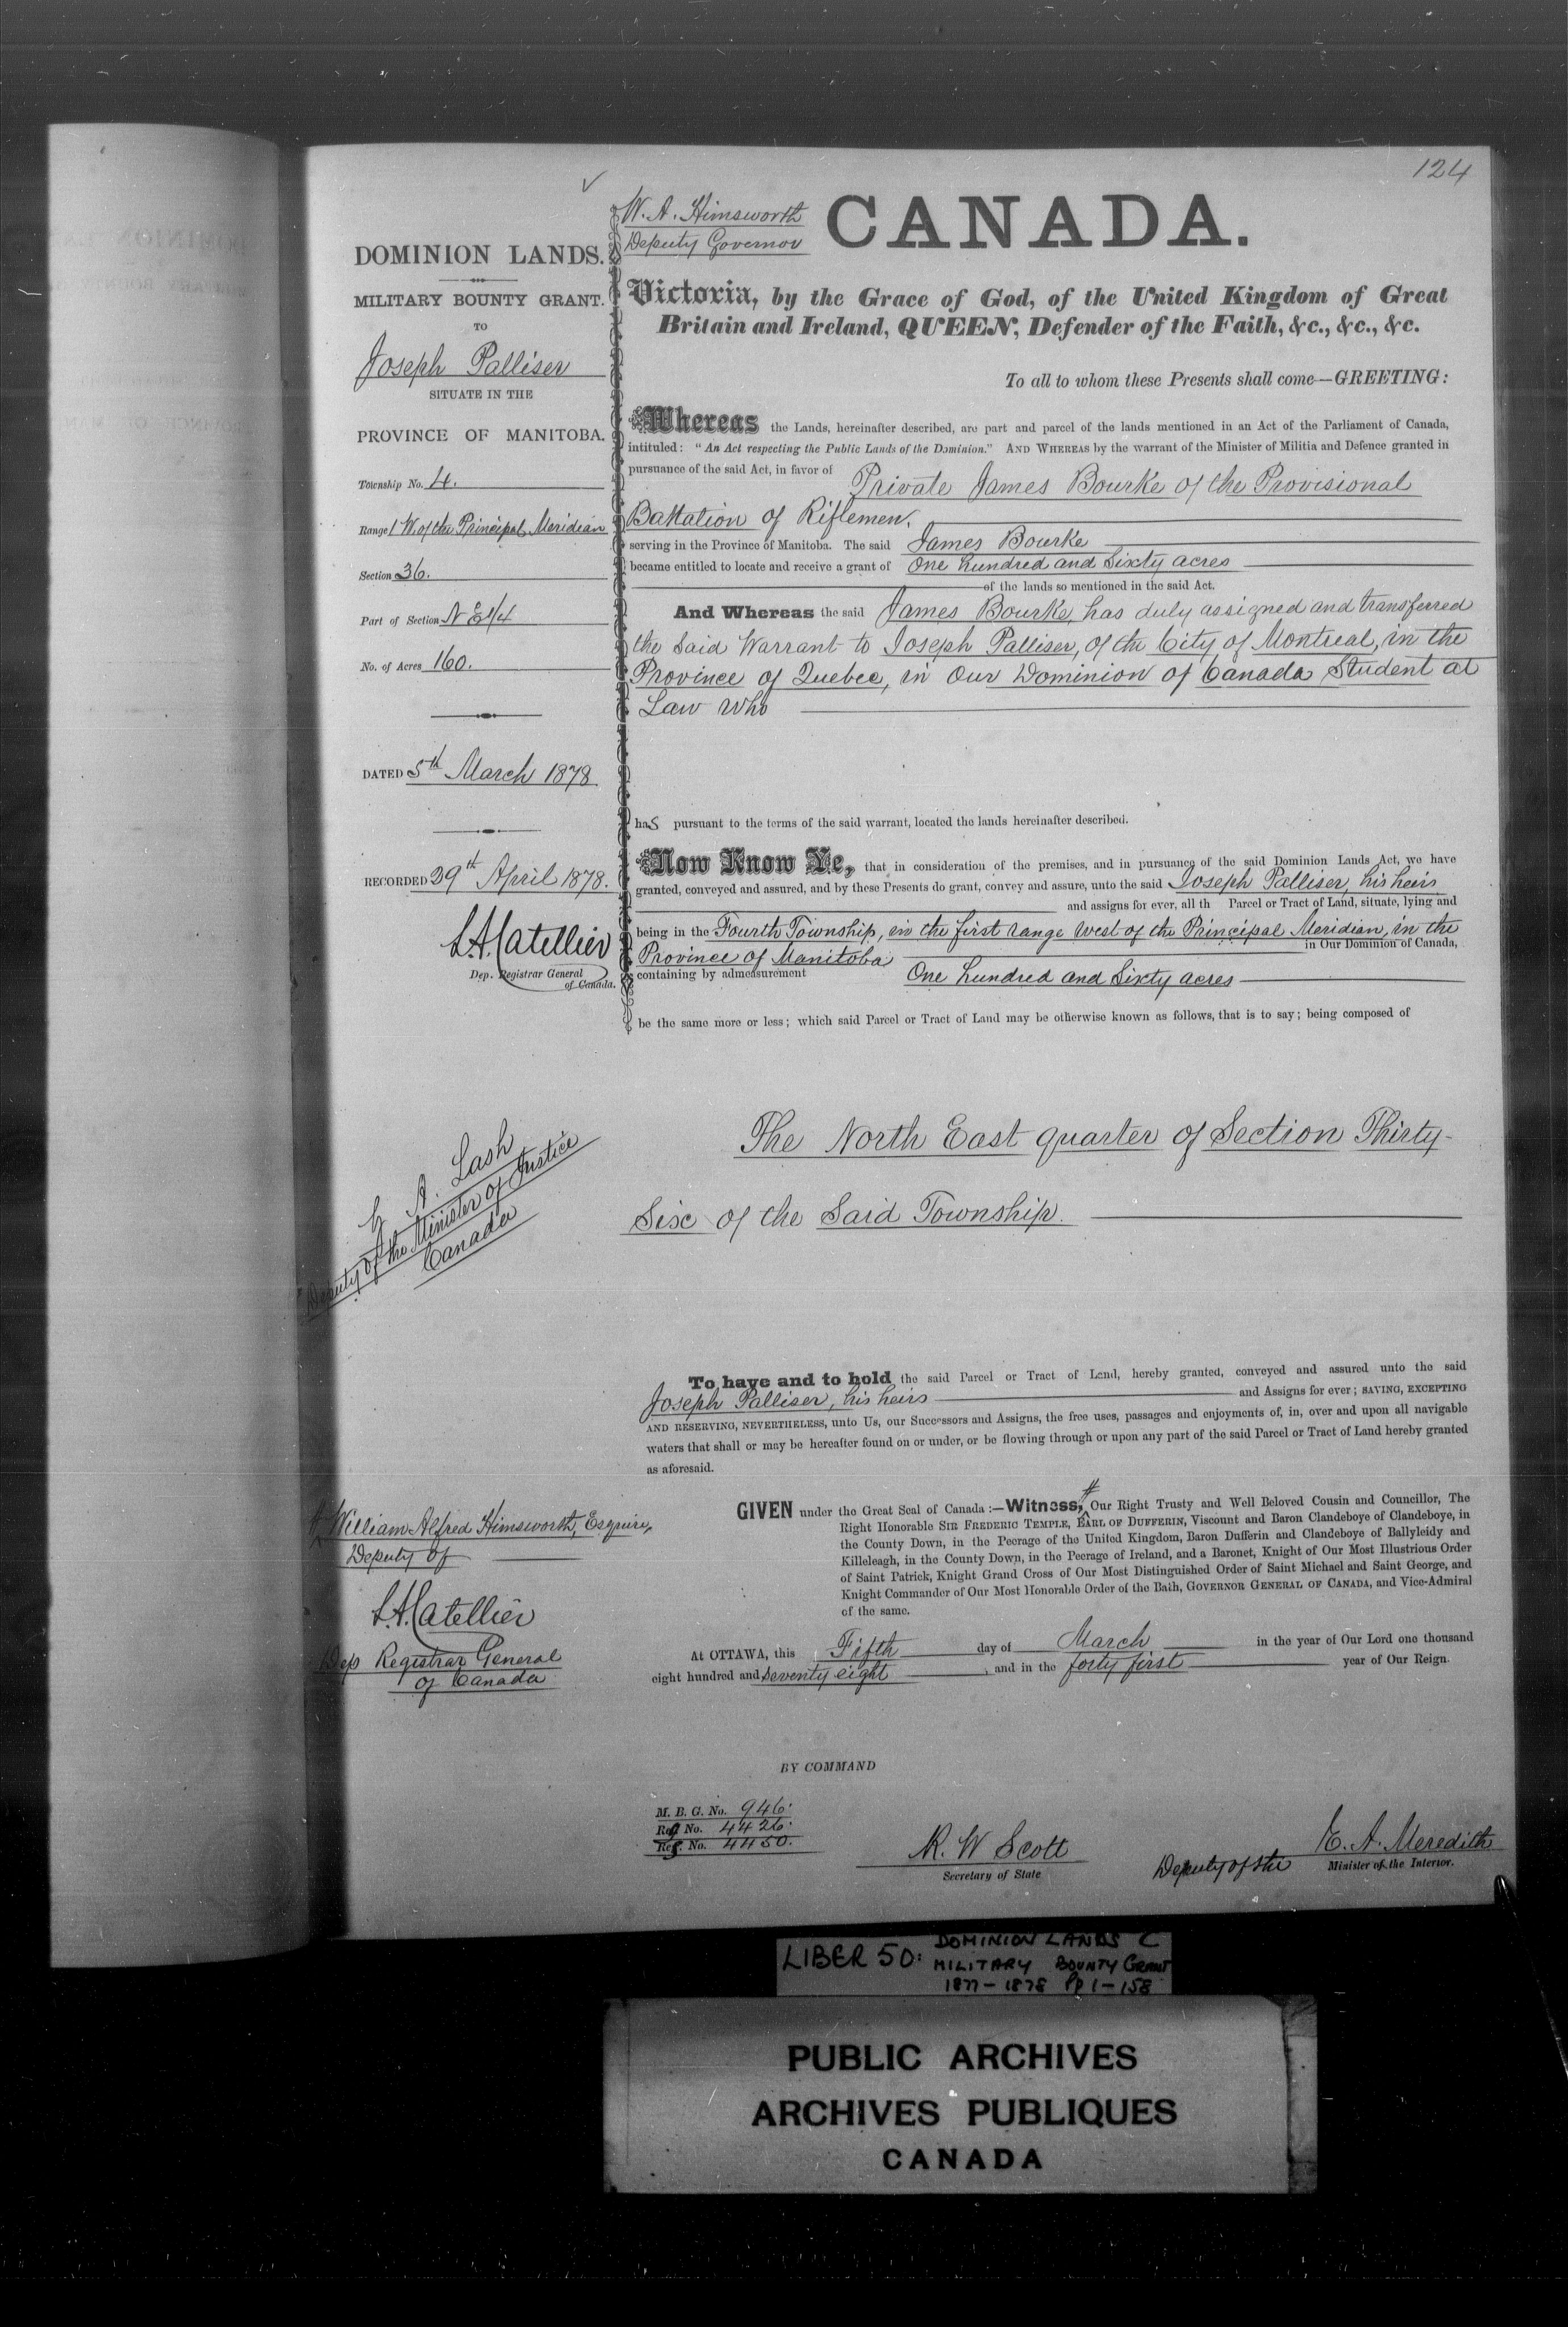 124
W. A. Himsworth
Deputy Governor
CANADA.
DOMINION LANDS.
MILITARY BOUNTY GRANT.
TO
Joseph Palliser
SITUATE IN THE
PROVINCE OF MANITOBA.
Township No. 4.
Range 1 W. of the Principal Meridian
Section 36.
Part of Section N E 1/4
No. of Acres 160.
DATED 5th March 1878
RECORDED 29th April 1878.
L.A. Catellier
Dep. Registrar General
of Canada.
Victoria, by the Grace of God, of the United Kingdom of Great
Britain and Ireland, QUEEN, Defender of the Faith, &c., &c., &c.
To all to whom these Presents shall come—GREETING:
Whereas the Lands, hereinafter described, are part and parcel of the lands mentioned in an Act of the Parliament of Canada,
intituled: "An Act respecting the Public Lands of the Dominion." AND WHEREAS by the warrant of the Minister of Militia and Defence granted in
pursuance of the said Act, in favor of Private James Bourke of the Provisional
Battalion of Riflemen.
serving in the Province of Manitoba. The said James Bourke
became entitled to locate and receive a grant of One hundred and Sixty acres
of the lands so mentioned in the said Act.
And Whereas the said James Bourke, has duly assigned and transferred
the Said Warrant to Joseph Palliser, of the City of Montreal, in the
Province of Quebec, in Our Dominion of Canada Student at
Law Who
has pursuant to the terms of the said warrant, located the lands hereinafter described.
Now Know Ye, that in consideration of the premises, and in pursuance of the said Dominion Lands Act, we have
granted, conveyed and assured, and by these Presents do grant, convey and assure, unto the said Joseph Palliser, his heirs
and assigns for ever, all th Parcel or Tract of Land, situate, lying and
being in the Fourth Township, in the first range West of the Principal Meridian, in the
Province of Manitoba in Our Dominion of Canada,
containing by admeasurement One hundred and Sixty acres
be the same more or less; which said Parcel or Tract of Land may be otherwise known as follows, that is to say; being composed of
The North East quarter of Section Thirty-
Six of the Said Township.
A. Lash
Deputy of the Minister of Justice
Canada
To have and to hold the said Parcel or Tract of Land, hereby granted, conveyed and assured unto the said
Joseph Palliser, his heirs and Assigns for ever; SAVING, EXCEPTING
AND RESERVING, NEVERTHELESS, unto Us, our Successors and Assigns, the free uses, passages and enjoyments of, in, over and upon all navigable
waters that shall or may be hereafter found on or under, or be flowing through or upon any part of the said Parcel or Tract of Land hereby granted
as aforesaid.
GIVEN under the Great Seal of Canada:—Witness, # Our Right Trusty and Well Beloved Cousin and Councillor, The
Right Honorable SIR FREDERIC TEMPLE, EARL OF DUFFERIN, Viscount and Baron Clandeboye of Clandeboye, in
the County Down, in the Peerage of the United Kingdom, Baron Dufferin and Clandeboye of Ballyleidy and
Killeleagh, in the County Down, in the Peerage of Ireland, and a Baronet, Knight of Our Most Illustrious Order
of Saint Patrick, Knight Grand Cross of Our Most Distinguished Order of Saint Michael and Saint George, and
Knight Commander of Our Most Honorable Order of the Bath, GOVERNOR GENERAL OF CANADA, and Vice-Admiral
of the same.
# William Alfred Himsworth, Esquire,
Deputy of
L.A. Catellier
Dep Registrar General
of Canada
At OTTAWA, this Fifth day of March in the year of Our Lord one thousand
eight hundred and Seventy eight, and in the forty first year of Our Reign.
BY COMMAND
M. B. G. No. 946.
Reg No. 4426.
Reg. No. 4450.
R. W Scott
Secretary of State
E. A. Meredith
Deputy of the Minister of the Interior.
LIBER 50: DOMINION LANDS C
MILITARY BOUNTY GRANT
1877-1878 Pp 1-158
PUBLIC ARCHIVES
ARCHIVES PUBLIQUES
CANADA